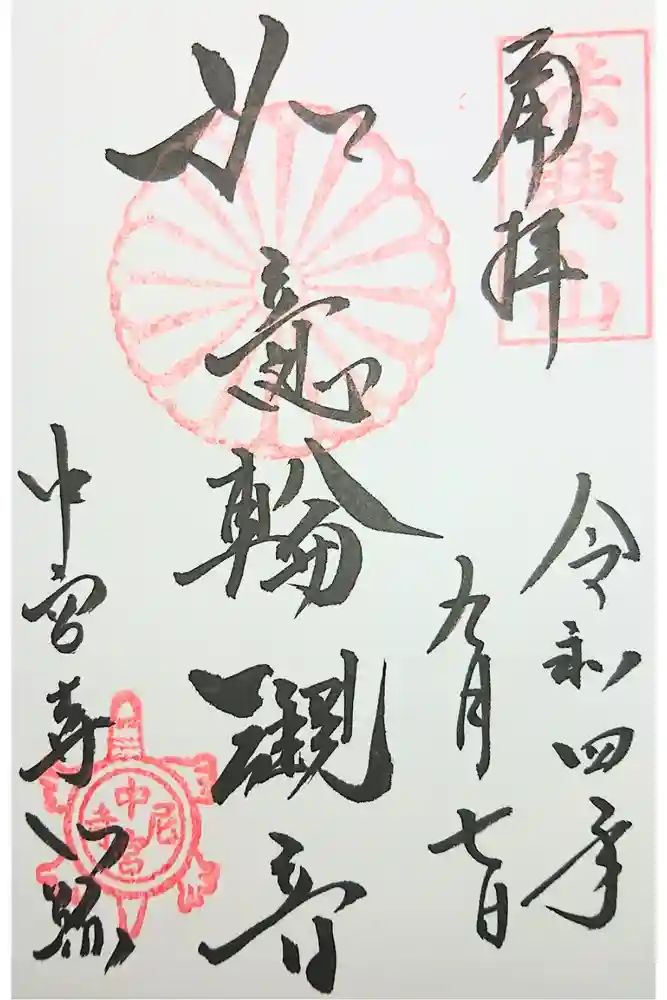 再拝
法興山
令和四年
九月七日
如意輪観音
中宮寺門跡
中宮尼寺